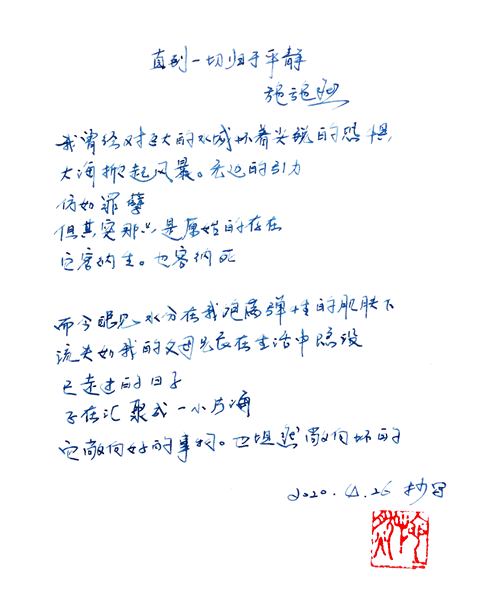 直到一切归于平静
施施然
我曾经对巨大的水域怀着尖锐的恐惧
大海掀起风暴。无边的引力
仿如罪孽
但其实那只是原始的存在
它容纳生。也容纳死
而今眼见水分在我饱满弹性的肌肤下
流失如我的父母先后在生活中隐没
已走过的日子
正在汇聚成一小片海
它敞向好的事物。也坦然敞向坏的
2020.4.26 抄写